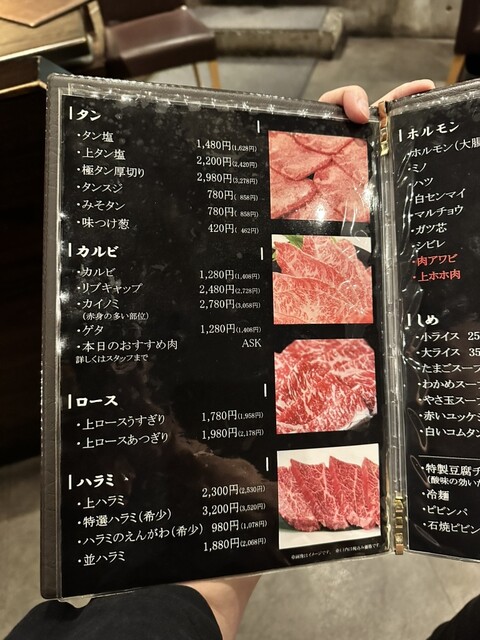 タン
・タン塩 1,480円(1,628円)
・上タン塩 2,200円(2,420円)
・極タン厚切り 2,980円(3,278円)
・タンスジ 780円(858円)
・みそタン 780円(858円)
・味つけ葱 420円(462円)
カルビ
・カルビ 1,280円(1,408円)
・リブキャップ 2,480円(2,728円)
・カイノミ 2,780円(3,058円)
(赤身の多い部位)
・ゲタ 1,280円(1,408円)
・本日のおすすめ肉 ASK
詳しくはスタッフまで
ロース
・上ロースうすぎり 1,780円(1,958円)
・上ロースあつぎり 1,980円(2,178円)
ハラミ
・上ハラミ 2,300円(2,530円)
・特選ハラミ(希少) 3,200円(3,520円)
・ハラミのえんがわ(希少) 980円(1,078円)
・並ハラミ 1,880円(2,068円)
※画像はイメージです。 ※( )内は税込価格です。
ホルモン
・ホルモン(大腸
・ミノ
・ハツ
・白センマイ
・マルチョウ
・ガツ芯
・シビレ
・肉アワビ
・上ホホ肉
しめ
・小ライス 25
・大ライス 35
・たまごスープ
・わかめスープ
・やさ玉スープ
・赤いユッケジ
・白いコムタン
・特製豆腐チ
(酸味の効いた
・冷麺
・ビビンバ
・石焼ビビン